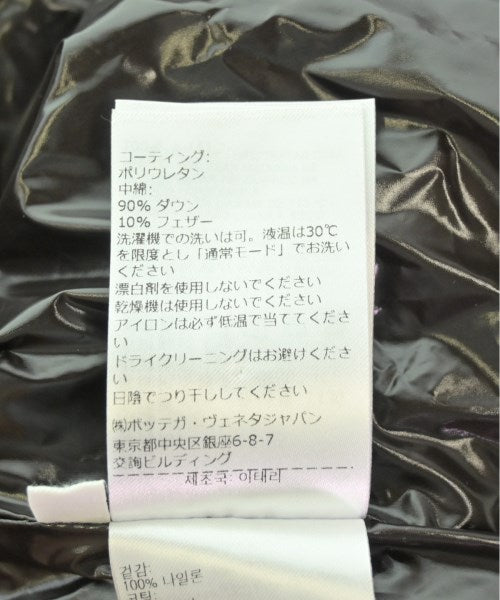 コーティング:
ポリウレタン
中綿:
90% ダウン
10% フェザー
洗濯機での洗いは可。液温は30℃
を限度とし「通常モード」でお洗い
ください
漂白剤を使用しないでください
乾燥機は使用しないでください
アイロンは必ず低温で当ててくださ
い
ドライクリーニングはお避けくださ
い
日陰でつり干ししてください
㈱ボッテガ・ヴェネタジャパン
東京都中央区銀座6-8-7
交詢ビルディング
제조국: 이태리
겉감:
100% 나일론
코팅: